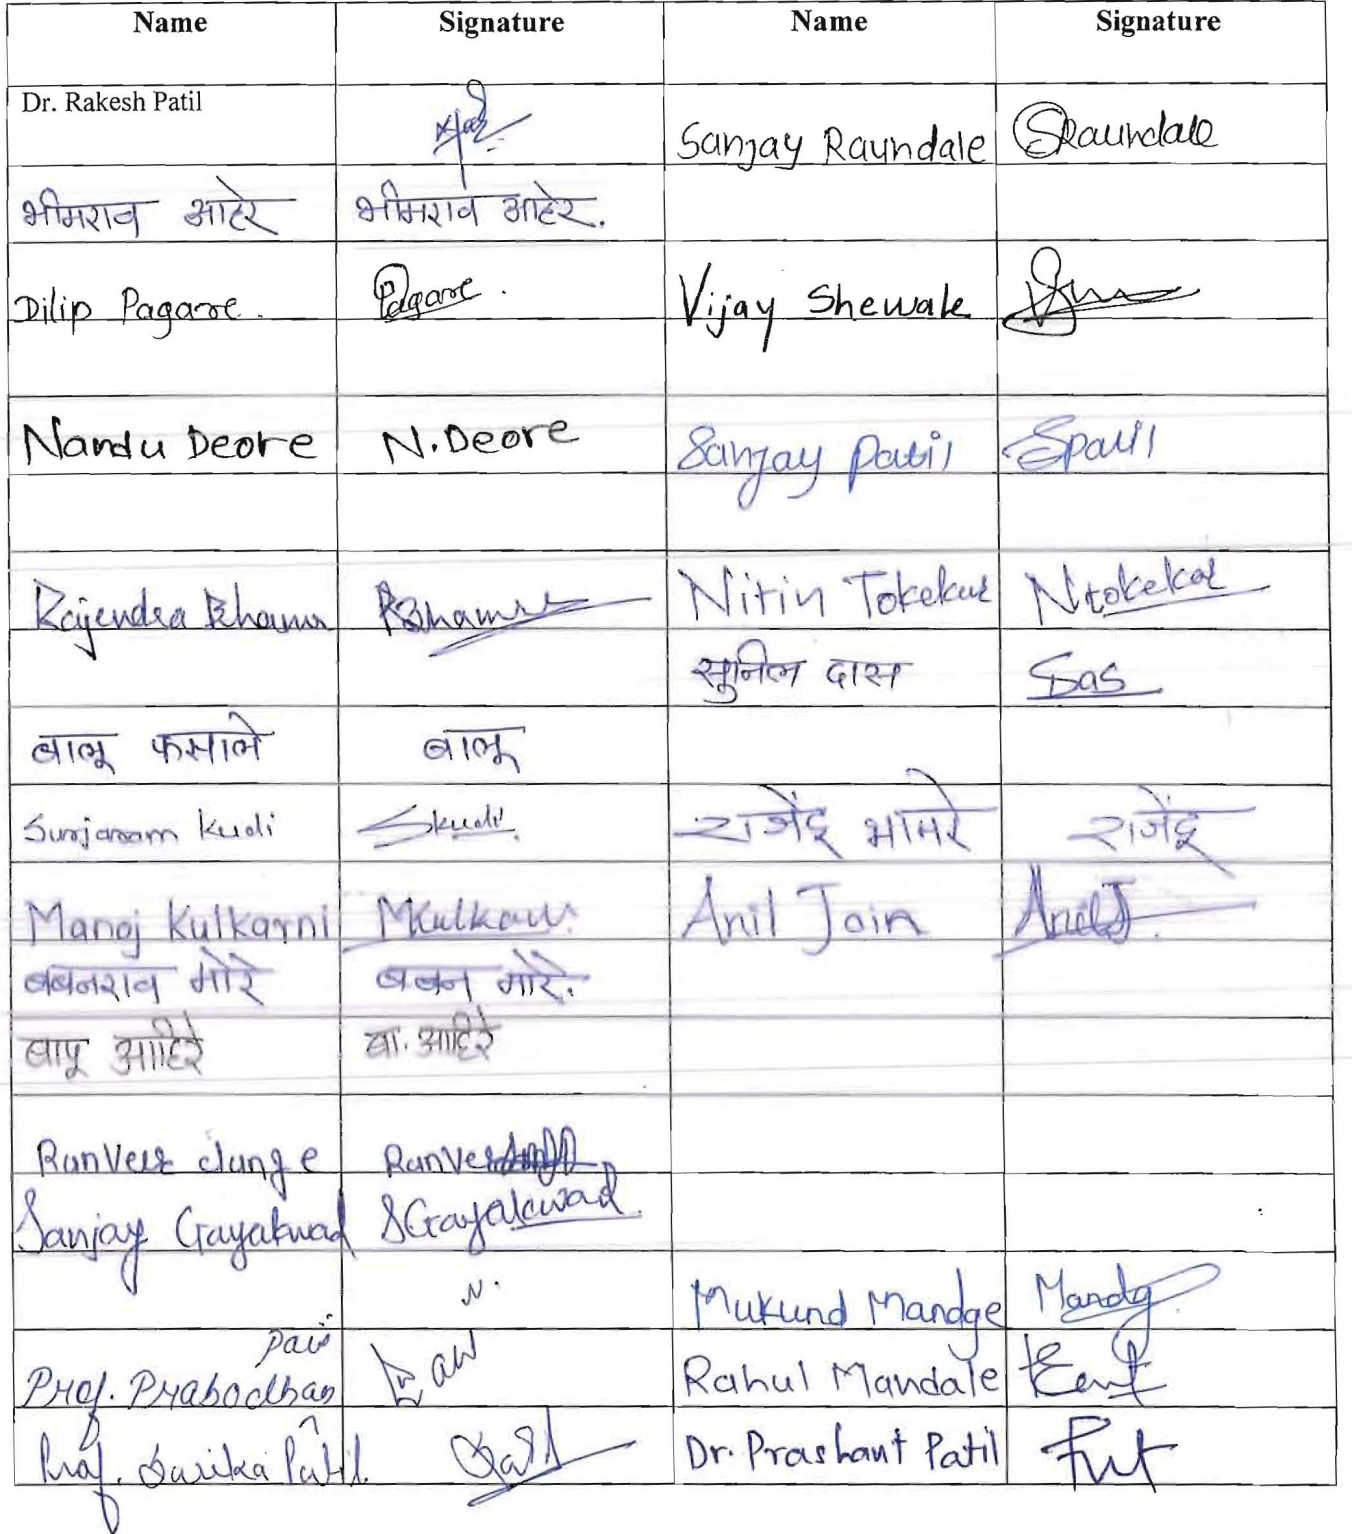 Name Signature Name Signature
Dr. Rakesh Patil Sanjay Raundale SRaundale
भीमराव आहेर भीमराव आहेर.
Dilip Pagare. Pagare. Vijay Shewale
Nandu Deore N.Deore Sanjay Patil SPatil
Rajendra Bhamre RBhamre Nitin Tokekar Ntokekar
सुनिल दास Das
बाळू कसाले बाळू
Surjaram Kudi Skudi राजेंद्र भामरे राजेंद्र
Manoj Kulkarni MKulkarni Anil Jain AnilJ
बबनराव मोरे बबन मोरे.
बापू आहिरे बा. आहिरे
Ranveer Ranveer
Sanjay Gayakwad SGayakwad.
N. Mukund Mandge Mandg
Prof. Prabodhan Rahul Mandale
Prof. Sarika Patil. Dr. Prashant Patil